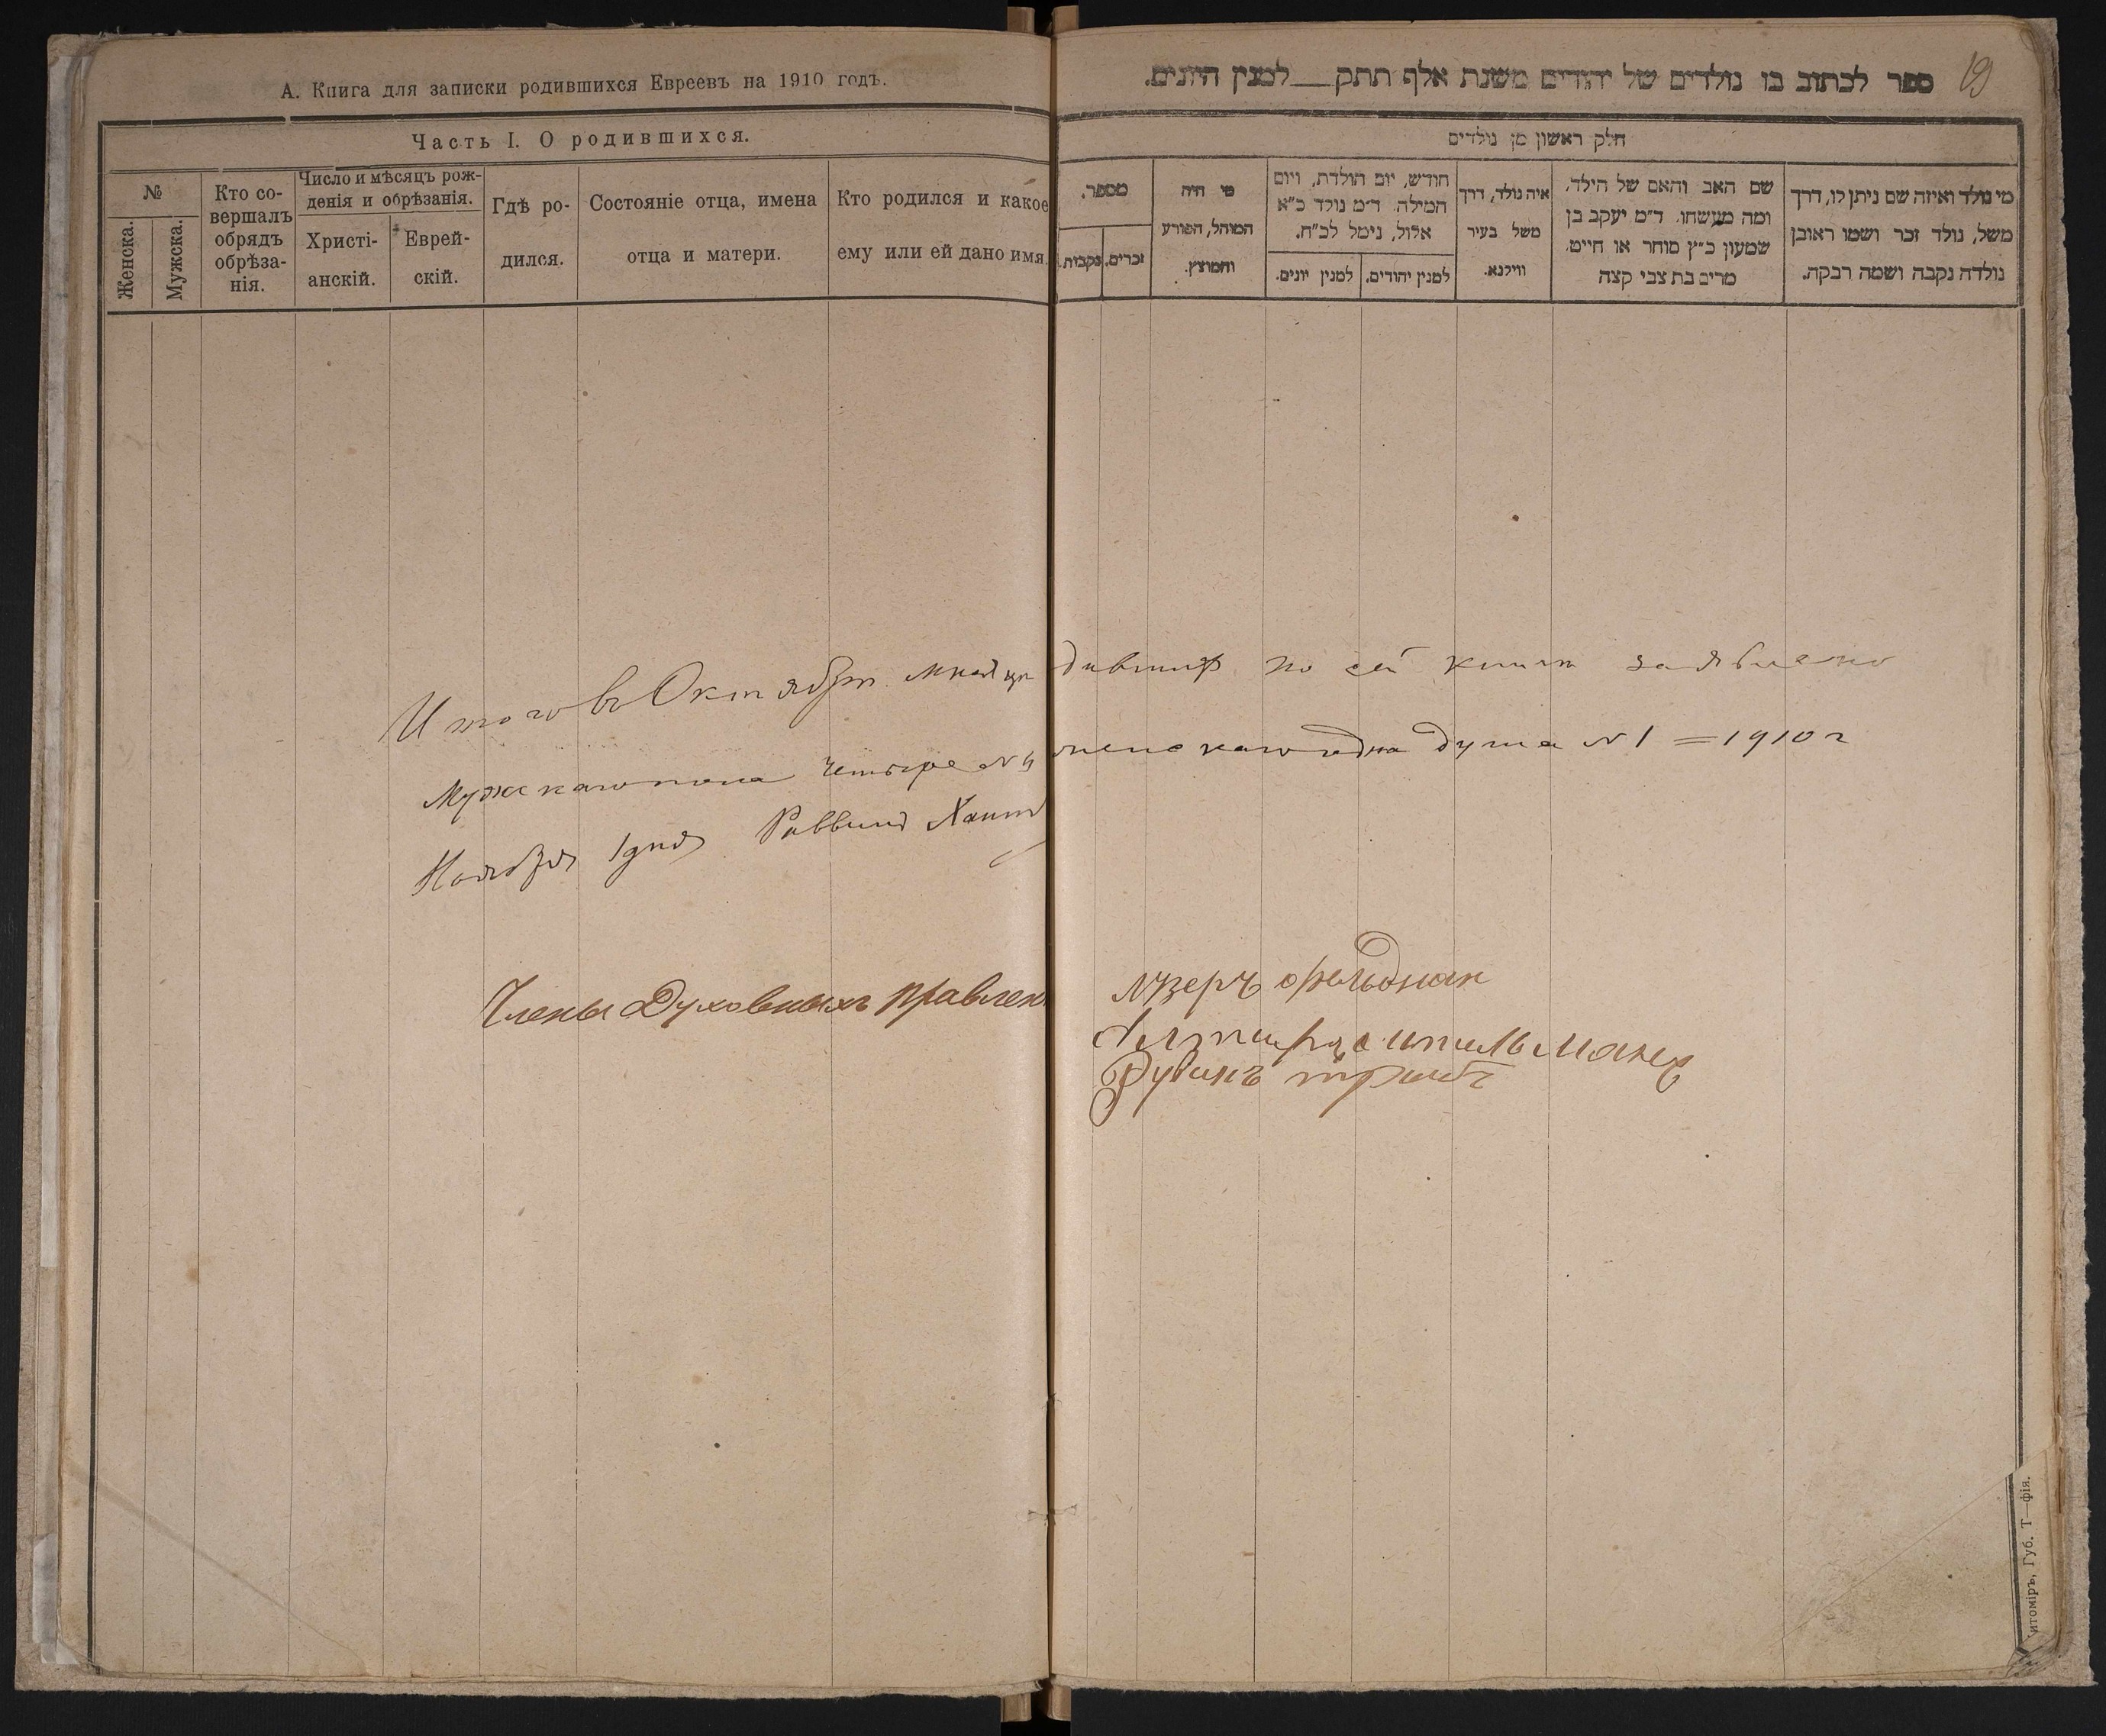 А. Книга для записки родившихся Евреевъ на 1910 годъ.
Часть I. О родившихся.
№
Женска.
Мужска.
Кто со-
вершалъ
обрядъ
обрѣза-
нія.
Число и мѣсяцъ рож-
денія и обрѣзанія.
Христі-
анскій.
Еврей-
скій.
Гдѣ ро-
дился.
Состояніе отца, имена
отца и матери.
Кто родился и какое
ему или ей дано имя.
19
ספר לכתוב בו נולדים של יהודים משנת אלף תתק למנין היונים.
חלק ראשון מן נולדים
מספר.
זכרים.
נקבות.
מי היה
המוהל, הפורע
והמוצץ.
חודש, יום הולדת, ויום
המילה. ד״מ נולד כ״א
אלול, נימל לכ״ח.
למנין יהודים.
למנין יונים.
איה נולד, דרך
משל בעיר
ווילנא.
שם האב והאם של הילד,
ומה מעשהו. ד״מ יעקב בן
שמעון כ״ץ סוחר או חייט.
מרים בת צבי קצה
מי נולד ואיזה שם ניתן לו, דרך
משל, נולד זכר ושמו ראובן
נולדה נקבה ושמה רבקה.
Итого въ Октябрѣ мѣсяцѣ по сей книги заявлено
Мужскаго пола четыре №4 женскаго одна душа №1 = 1910 г
Ноября 1 дня Раввинъ
Члены Духовныхъ Правлен
Фельдман
Рубинъ
итоміръ, Губ. Т—фія.